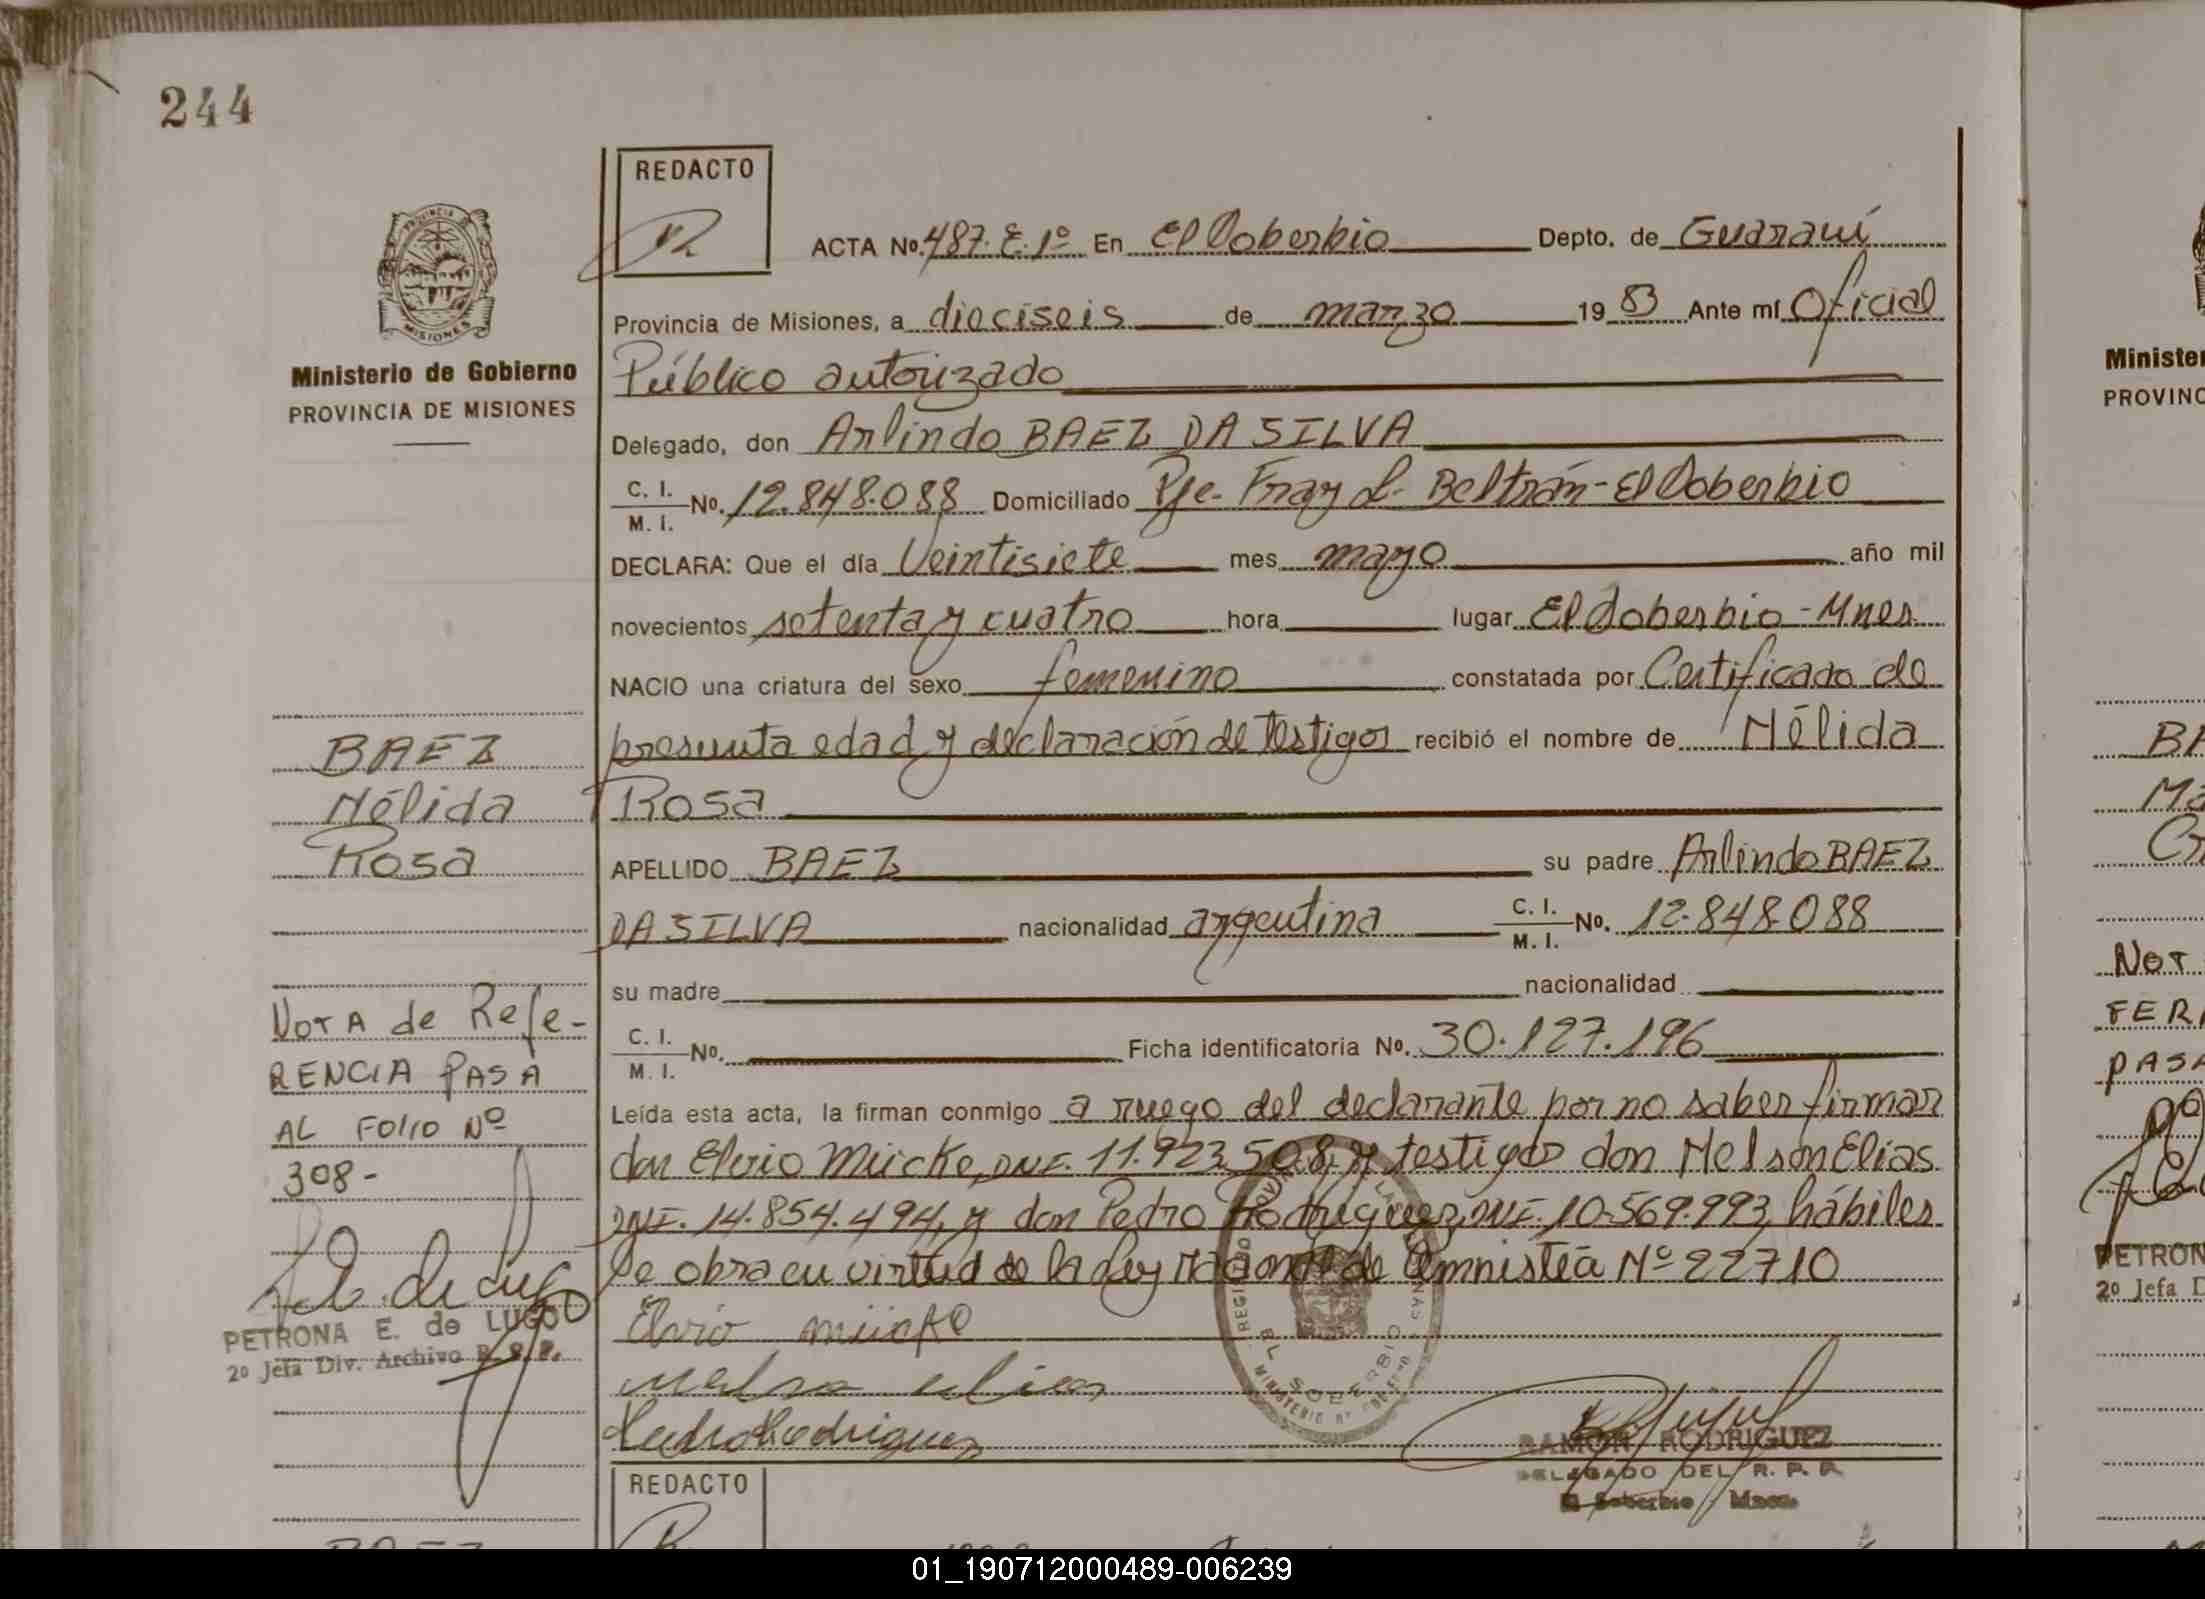 244
REDACTO
PROVINCIA DE
MISIONES
Ministerio de Gobierno
PROVINCIA DE MISIONES
ACTA No. 487. E. 1º En El Soberbio Depto. de Guaraní
Provincia de Misiones, a dieciseis de marzo 19 83 Ante mí Oficial
Público autorizado
Delegado, don Arlindo BAEZ DA SILVA
C. I.
M. I. No. 12.848.088 Domiciliado Pje. Fray L. Beltrán - El Soberbio
DECLARA: Que el día Veintisiete mes mayo año mil
novecientos setenta y cuatro hora lugar El Soberbio - Mnes.
NACIO una criatura del sexo femenino constatada por Certificado de
presunta edad y declaración de testigos recibió el nombre de Nélida
Rosa
APELLIDO BAEZ su padre Arlindo BAEZ
DA SILVA nacionalidad argentina C. I.
M. I. No. 12.848.088
su madre nacionalidad
C. I.
M. I. No. Ficha identificatoria No. 30.127.196
Leída esta acta, la firman conmigo a ruego del declarante por no saber firmar
don Elvio Mücke, DNI. 11.923.508, y testigos don Nelson Elias
DNI. 14.854.494, y don Pedro Rodriguez, DNI. 10.569.993, hábiles
Se obra en virtud de la Ley Nacional de Amnistía Nº 22710
Elvio Mücke
Nelson Elias
Pedro Rodriguez
EL SOBERBIO
RAMON RODRIGUEZ
DELEGADO DEL R. P. P.
El Soberbio - Mnes.
BAEZ
Nélida
Rosa
NOTA de Refe-
RENCIA PASA
AL FOLIO Nº
308-
PETRONA E. de LUGO
2º Jefa Div. Archivo R. P. P.
REDACTO
BAEZ
Minister
PROVINC
BA
Ma
NOT
FER
PASA
PETRON
2º Jefa D
01_190712000489-006239